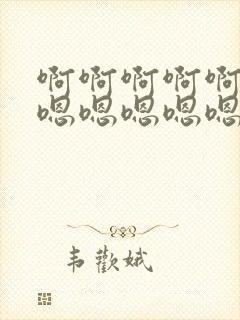 啊啊啊啊啊
嗯嗯嗯嗯嗯
韦歡娥